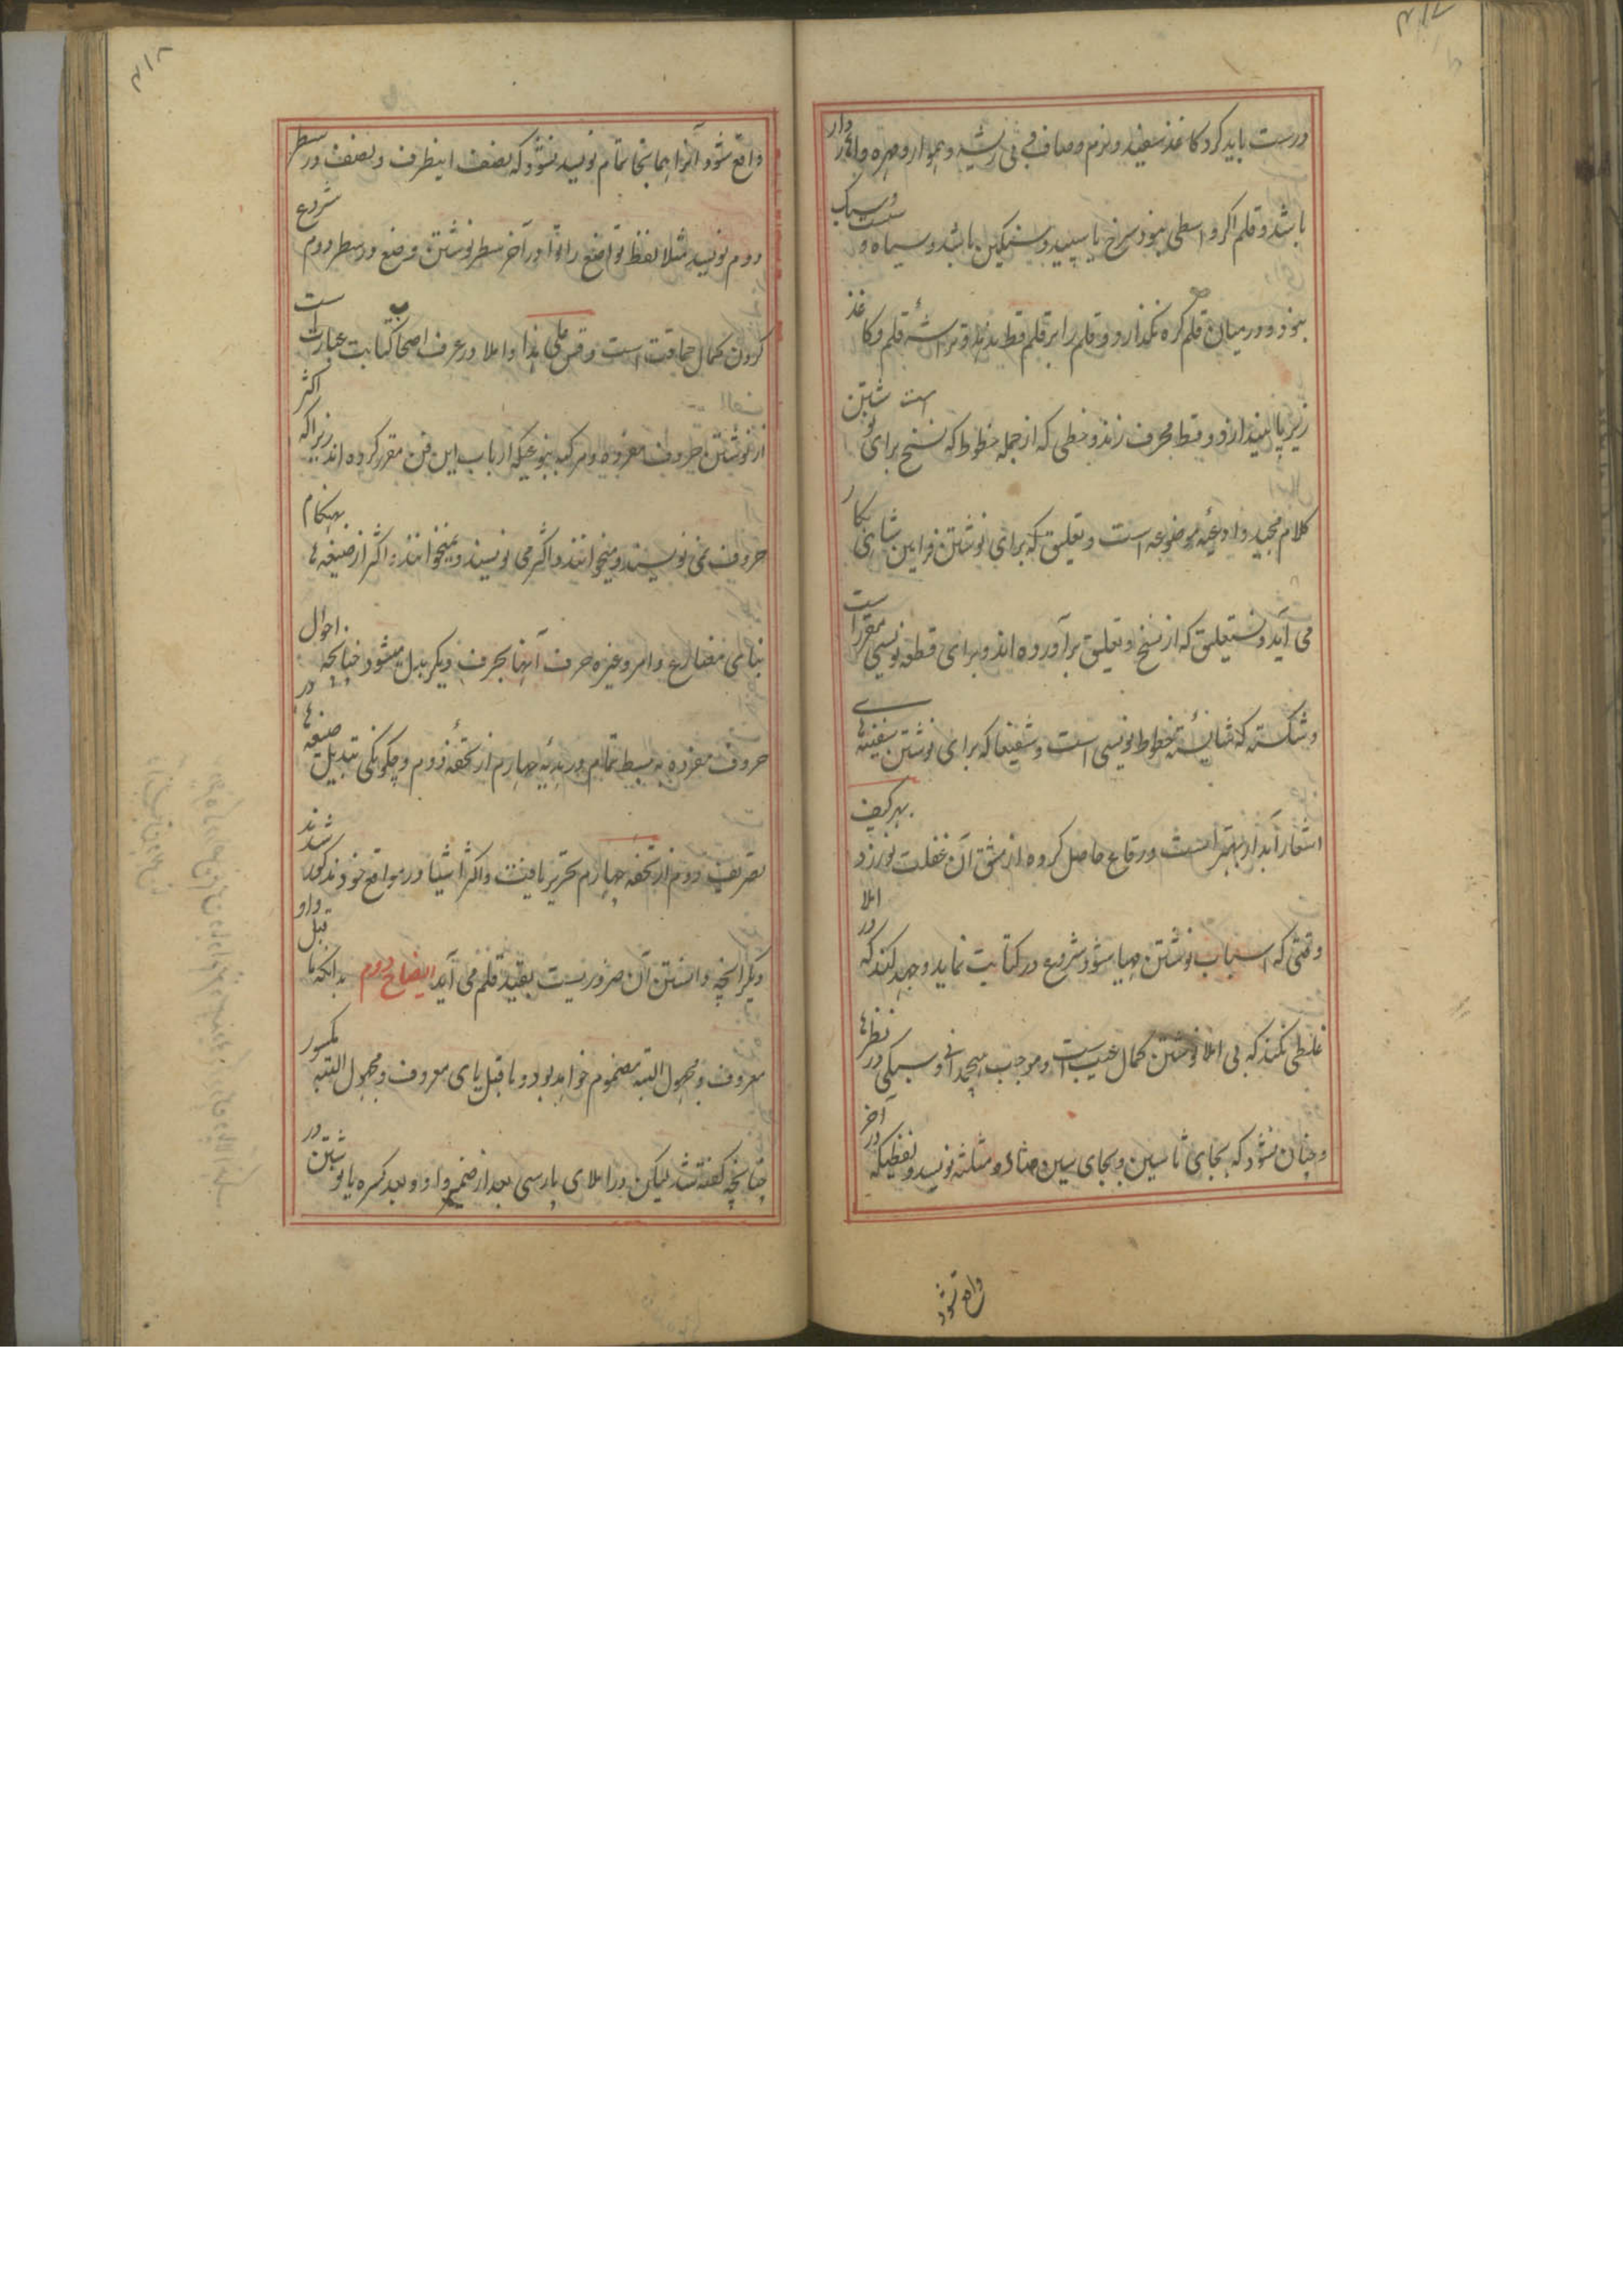 درست باید کرد کاغذ سفید و نرم و صاف بی ریشه و هموار و مهره دار
باشد و قلم اگر واسطی نبود سرخ یا سپید و سنگین باشد و سیاه و سست و سبک
نبود و در میان قلم گره نگذارد و قلم را بر قلم قط ندهد و تراشهٔ قلم و کاغذ
زیر پا نیندازد و قط محرف زند و خطی که از جمله خطوط که نسخ برای نوشتن
کلام مجید و ادعیه موضوعه است و تعلیق که برای نوشتن فرامین شاهی بکار
می آید و نستعلیق که از نسخ و تعلیق برآورده اند و برای قطعه نویسی مقرر است
و شکسته که شایستهٔ خطوط نویسی است و شفیعا که برای نوشتن سفینه های
اشعار آبدار بهتر است و رقاع حاصل کرده از مشق آن غفلت نورزد بهر کیف
وقتی که اسباب نوشتن مهیا شود شروع در کتابت نماید و جهد کند که در املا
غلطی نکند که بی املا نوشتن کمال عیب است و موجب هیچدانی و سبکی در نظرها
و چنان نشود که بجای ثا سین و بجای سین و صاد مثلثه نویسد و لفظیکه در آخر
واقع شود
واقع شود آنرا همانجا تمام نویسد نشود که نصف اینطرف و نصف در سطر
دوم نویسد مثلا لفظ تواضع را توا در آخر سطر نوشتن و ضع در سطر دوم شروع
کردن کمال حماقت است و قس علی هذا و املا در عرف اصحاب کتابت عبارت است
از نوشتن حروف مفرده و مرکبه بنوعیکه ارباب این فن مقرر کرده اند زیراکه اکثر
حروف نمی نویسند و میخوانند و اکثر می نویسند و نمیخوانند و اکثر از صیغه ها بهنگام
بنای مضارع و امر و غیره حرف آنها بحرف دیگر بدل میشود چنانچه احوال
حروف مفرده به بسط تمام در هدیه چهارم از تحفهٔ دوم و چگونگی تبدیل صیغه ها در
تصریف دوم از تحفه چهارم تحریر یافت و اکثر اشیا در مواقع خود مذکور شدند
دیگر آنچه دانستن آن ضرور نیست بقید قلم می آید ایضاح دوم بدانکه ما قبل واو
معروف و مجهول البته مضموم خواهد بود و ما قبل یای معروف و مجهول البته مکسور
چنانچه گفته شد لیکن در املای پارسی بعد از ضمه واو و بعد کسره یا نوشتن در